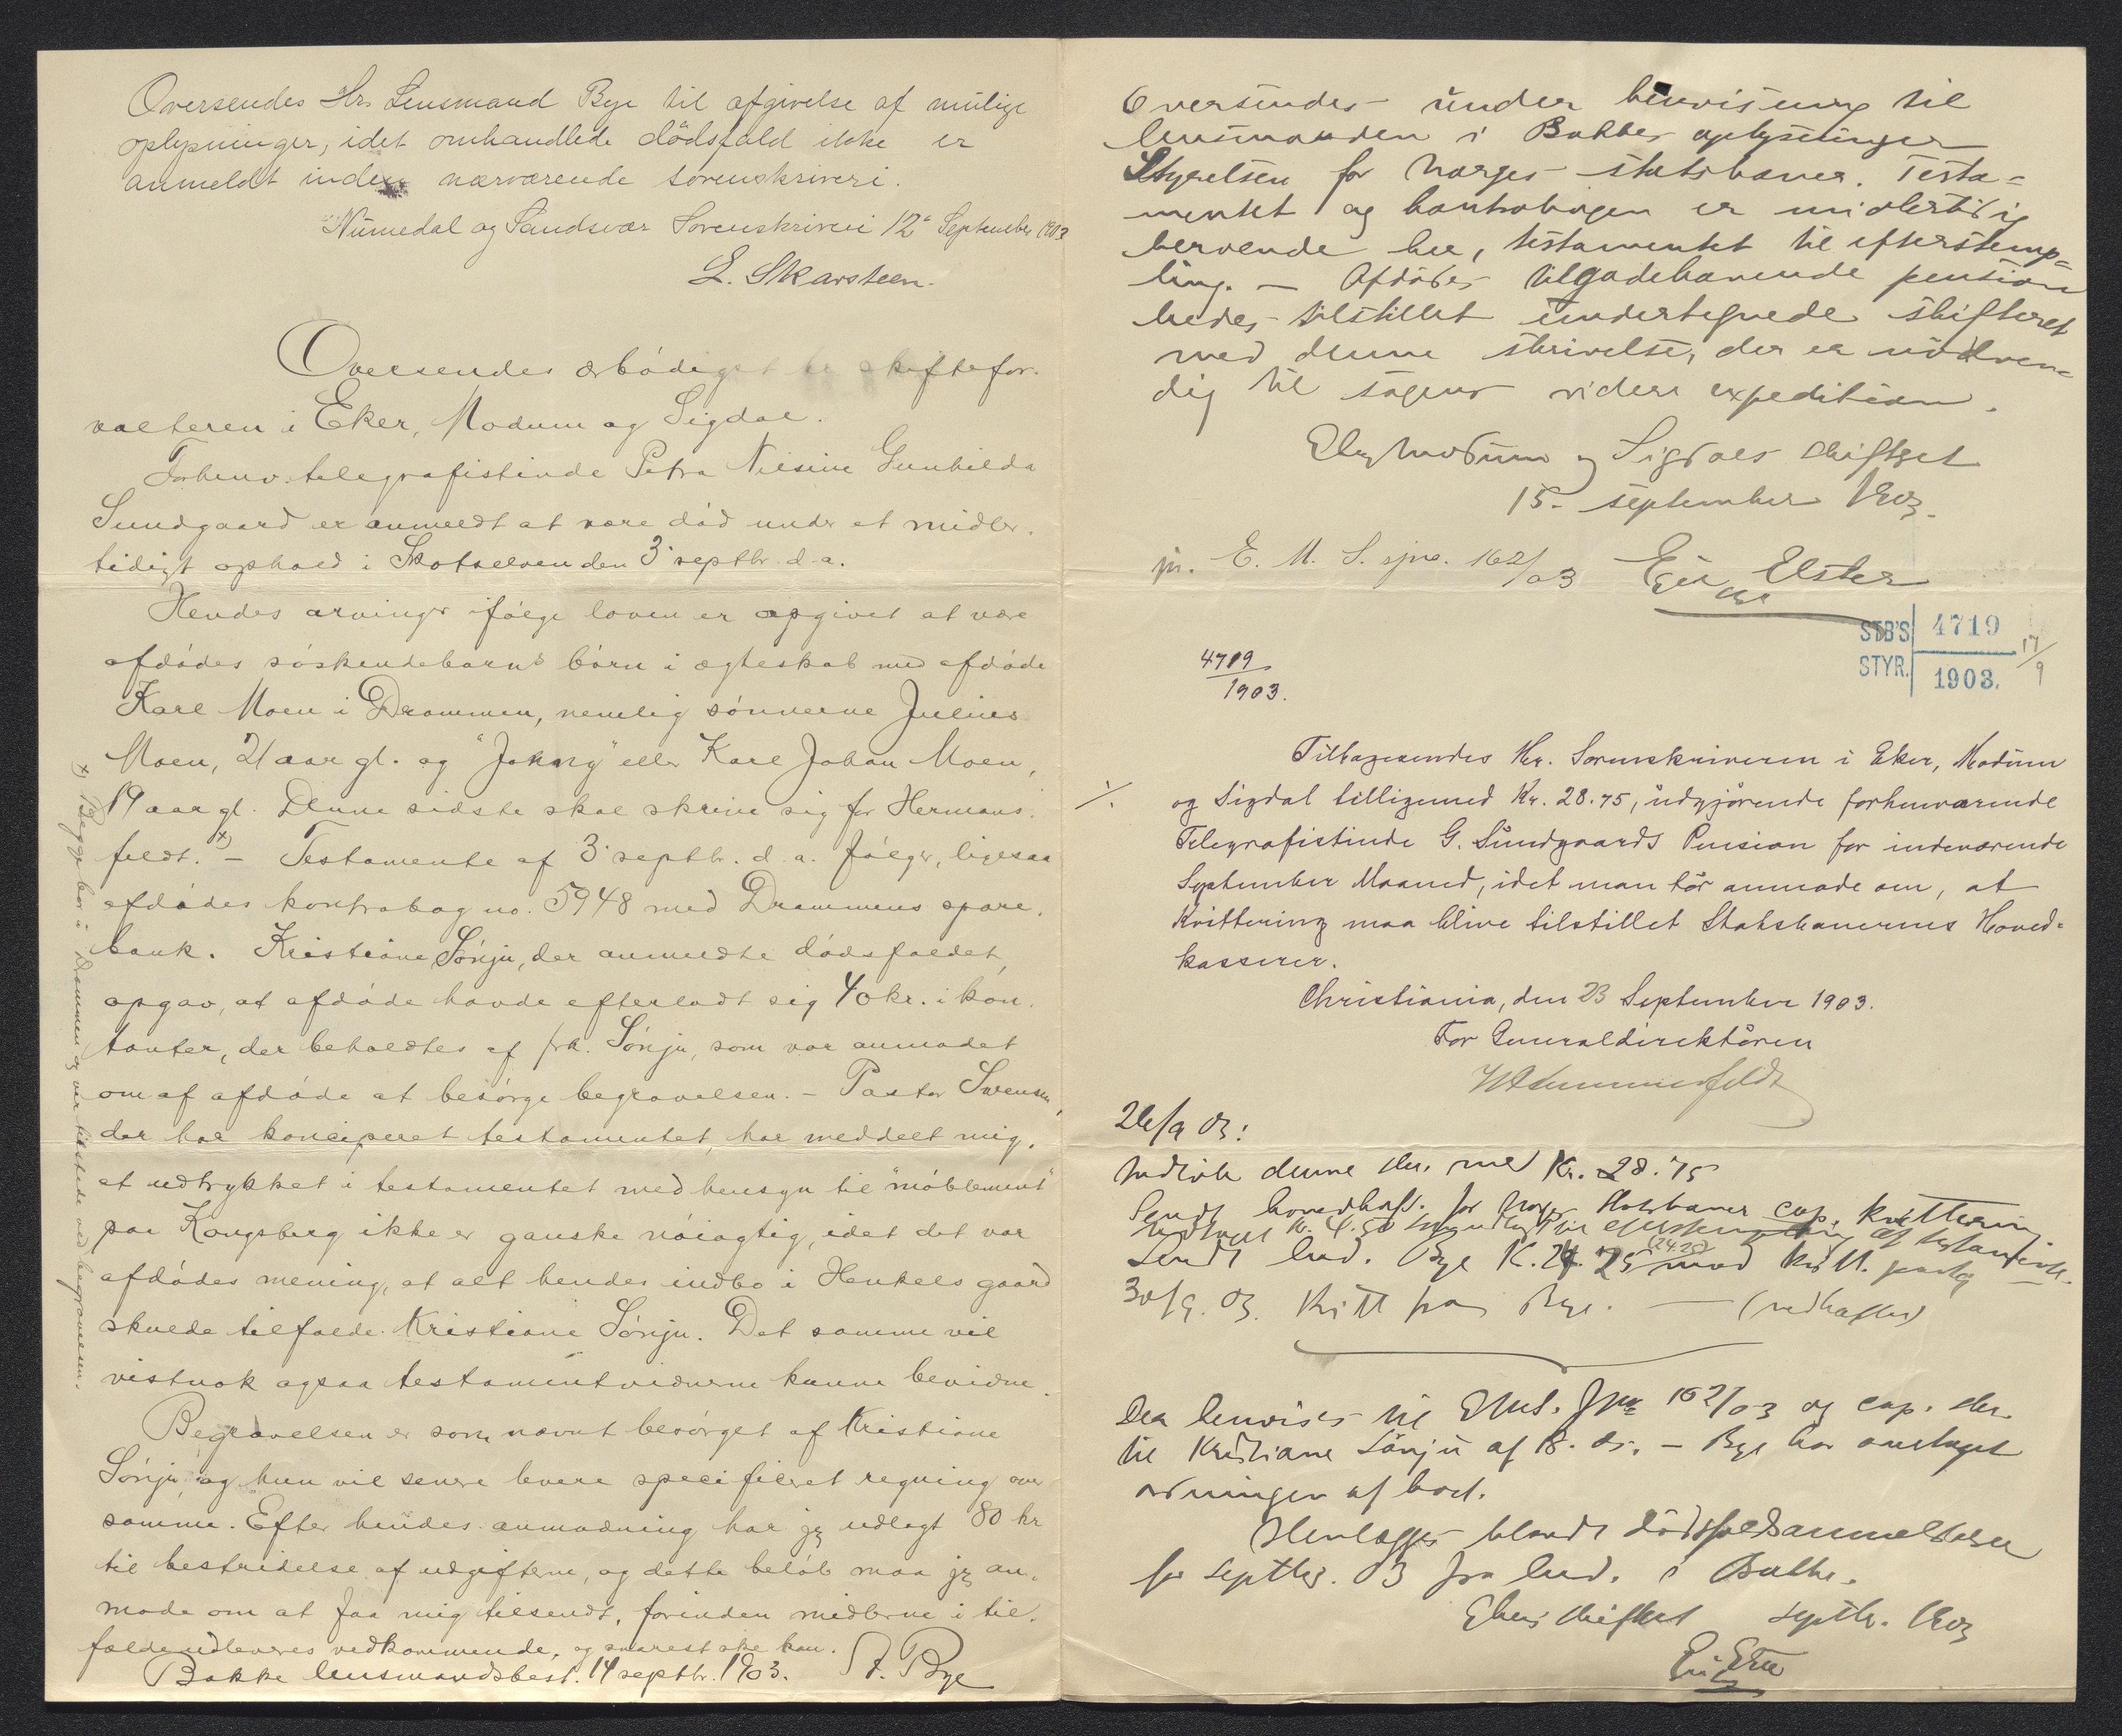 Oversendes Hr. Lensmand Bye til afgivelse af mulige
oplysninger, idet omhandlede dödsfald ikke er
anmeldt inden nærværende sorenskriveri.
Numedal og Sandsvær Sorenskriveri 12te September 1903
L. Skarsteen.
Oversendes ærbödigst hr skiftefor-
valteren i Eker, Modum og Sigdal.
Forhenv. telegrafistinde Petra Nilsine Gunhilda
Sundgaard er anmeldt at være död under et midler-
tidigt ophold i Skotselven den 3. septbr. d. a.
Hendes arvinger ifölge loven er opgivet at være
afdödes söskendebarns börn i ægteskab med afdöde
Karl Moen i Drammen, nemlig sönnerne Julius
Moen, 21 aar gl. og "Johnny" eller Karl Johan Moen,
19 aar gl. Denne sidste skal skrive sig for Hermans-
feldt. x) – Testamente af 3. septbr. d. a. fölger, ligesaa
afdödes kontrabog no. 5948 med Drammens spare-
bank. Kristiane Sönju, der anmeldte dödsfaldet,
opgav, at afdöde havde efterladt sig 40 kr. i kon-
tanter, der beholdtes af frk. Sönju, som var anmodet
om af afdöde at besörge begravelsen. – Pastor Svensen,
der har konciperet testamentet, har meddelt mig,
at udtrykket i testamentet med hensyn til "möblement"
paa Kongsberg ikke er ganske nöiagtig, idet det var
afdödes mening, at alt hendes indbo i Henkels gaard
skulde tilfalde Kristiane Sönju. Det samme vil
vistnok ogsaa testamentvidnerne kunne bevidne.
Begravelsen er som nævnt besörget af Kristiane
Sönju, og hun vil senere levere specificeret regning over
samme. Efter hendes anmodning har jeg udlagt 80 kr
til bestridelse af udgifterne, og dette belöb maa jeg an-
mode om at faa mig tilsendt, forinden midlerne i til-
fælde udleveres vedkommende, og snarest ske kan.
Bakke lensmandsbest. 14 septbr. 1903. A. Bye
x) Begge bor i Drammen og var tilstede ved begravelsen.
Oversendes under henvisning til
lensmanden i Bakkes oplysninger
Styrelsen for Norges statsbaner. Testa=
mentet og kontrabogen er midlertidig
beroende her, testamentet til efterstemp=
ling. – Afdödes tilgodehavende pension
bedes tilstillet undertegnede skifteret
med denne skrivelse, der er nödven=
dig til sagens videre expedition.
Eker, Modum og Sigdals skifteret
15. september 1903.
jn. E. M. S. sjno. 162/03 Elster
STB'S STYR. 4719 1903. 17/9
4719
1903.
Tilbagesendes Hr. Sorenskriveren i Eker, Modum
./. og Sigdal tilligemed Kr. 28.75, udgjörende forhenværende
Telegrafistinde G. Sundgaards Pension for indeværende
September Maaned, idet man tör anmode om, at
Kvittering maa blive tilstillet Statsbanernes Hoved=
kasserer.
Christiania, den 23 September 1903.
For Generaldirektören
26/9 03:
Indkom denne skr. med Kr. 28.75
Sendt hovedkass. for Norges statsbaner cop. kvittering
Sendt lmd. Bye K. 24.25 (24.25) mod kvitt.
30/9. 03. Kvitt fra Bye. — (vedhæftet)
Der henvises til EMS. Jno 162/03 og cop. skr.
til Kristiane Sönju af 18. ds. – Bye har
ordningen af boet.
Henlægges blandt dödsfaldsanmeldelser
for septbr. 03 fra lmd. i Bakke.
Ekers skifteret septbr. 1903